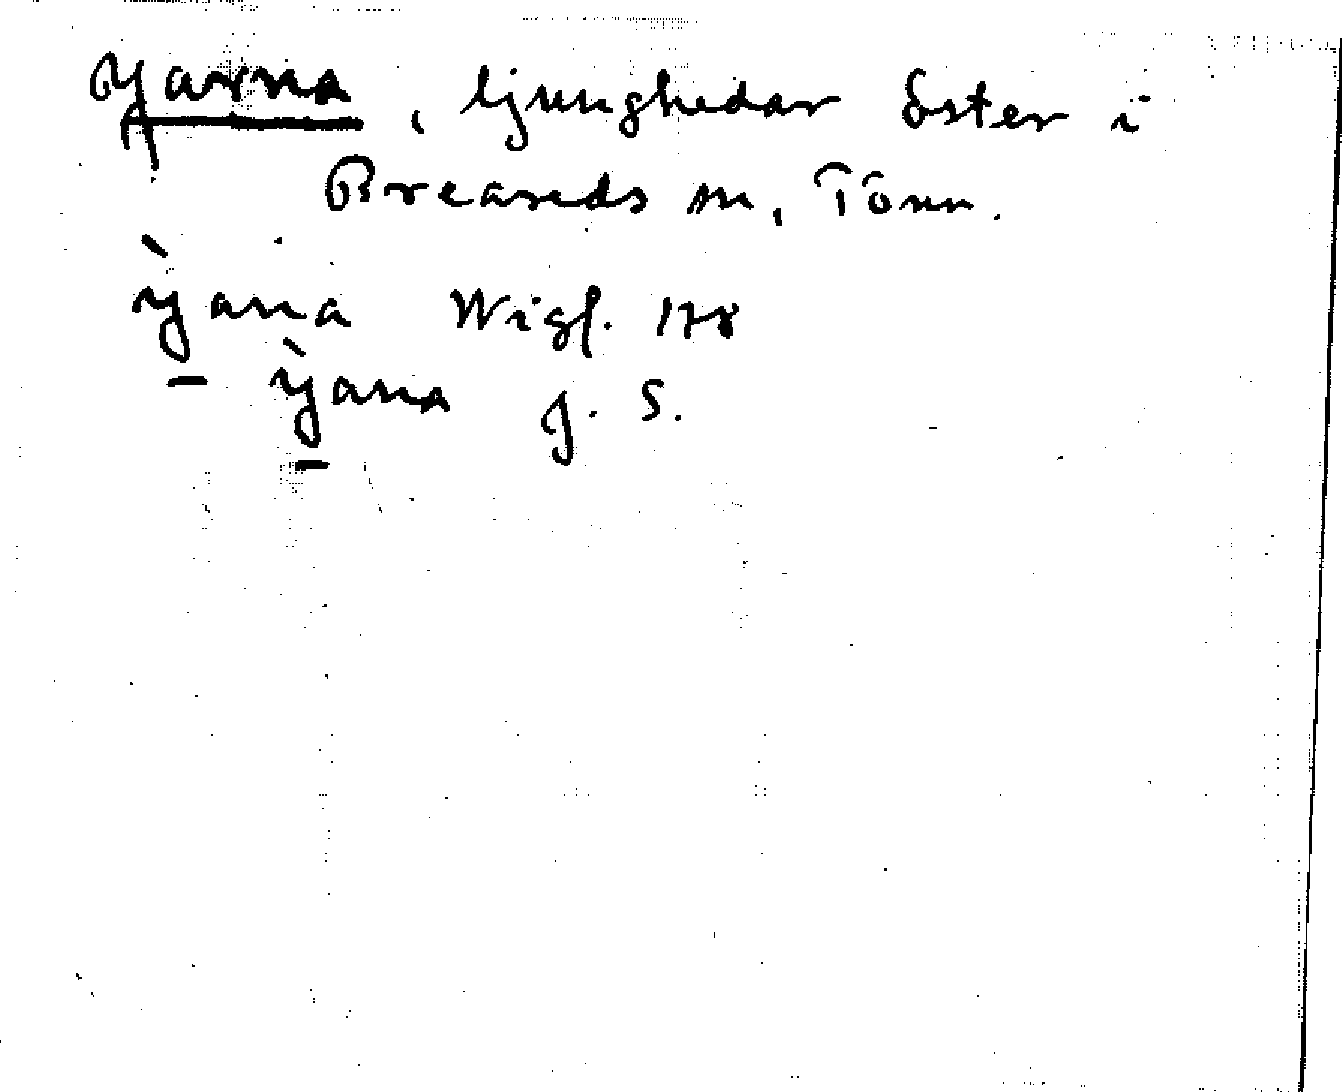 Yarna, ljunghedar öster i
Breareds sn, Tönn.
ỳana Wigf. 178
ỳana J. S.